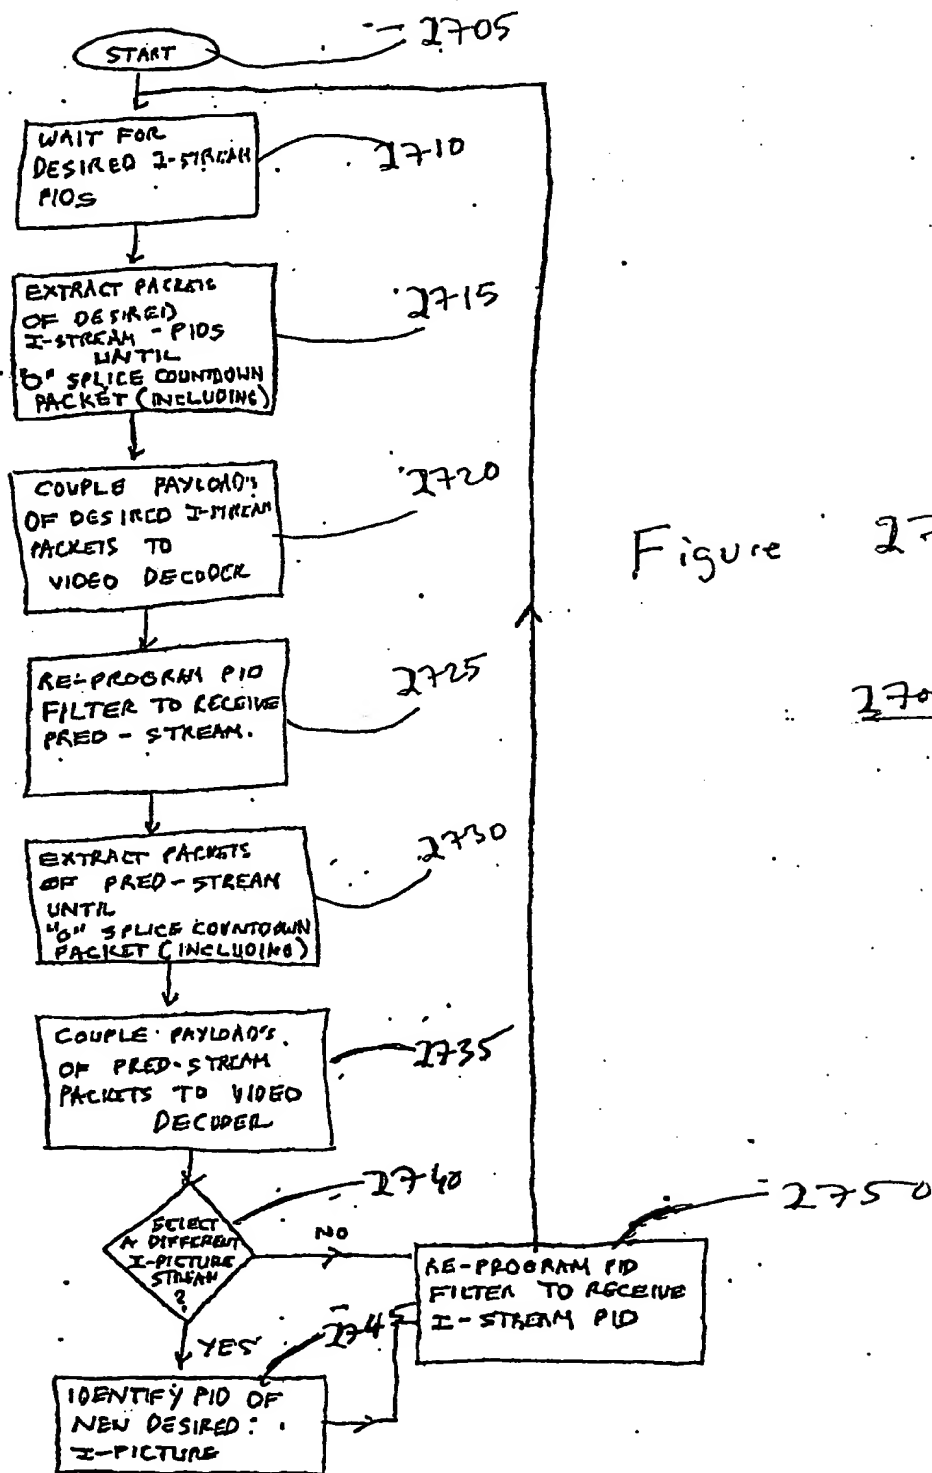 START
2705
WAIT FOR
DESIRED I-STREAM
PIDS
2710
EXTRACT PACKETS
OF DESIRED
I-STREAM - PIDS
UNTIL
"0" SPLICE COUNTDOWN
PACKET (INCLUDING)
2715
COUPLE PAYLOAD'S
OF DESIRED I-STREAM
PACKETS TO
VIDEO DECODER
2720
Figure 27
270
RE-PROGRAM PID
FILTER TO RECEIVE
PRED - STREAM.
2725
EXTRACT PACKETS
OF PRED-STREAM
UNTIL
"0" SPLICE COUNTDOWN
PACKET (INCLUDING)
2730
COUPLE PAYLOAD'S
OF PRED-STREAM
PACKETS TO VIDEO
DECODER
2735
SELECT
A DIFFERENT
I-PICTURE
STREAM
?
2740
NO
YES
RE-PROGRAM PID
FILTER TO RECEIVE
I-STREAM PID
2750
IDENTIFY PID OF
NEW DESIRED
I-PICTURE
2745